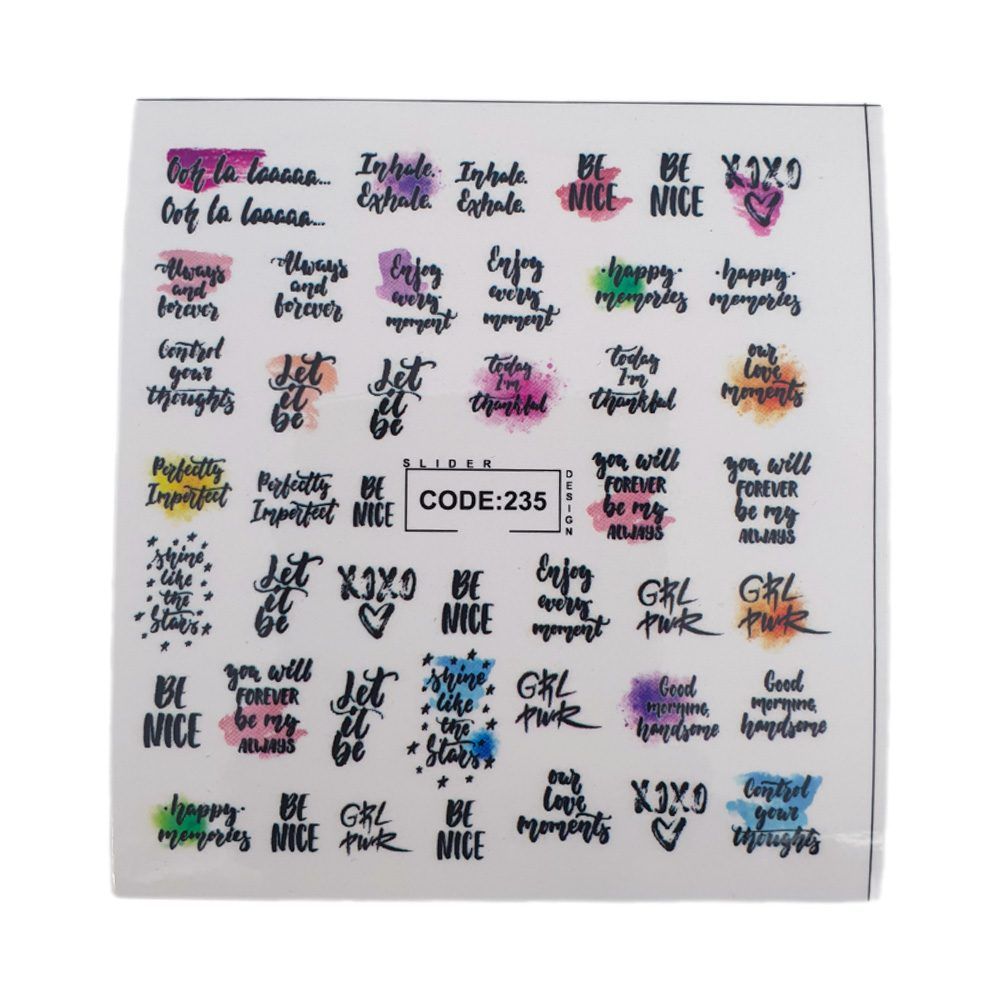 Ooh la laaaaa...
Ooh la laaaaa...
Inhale.
Exhale.
Inhale.
Exhale.
BE
NICE
BE
NICE
XOXO
Always
and
forever
Always
and
forever
Enjoy
every
moment
Enjoy
every
moment
·happy·
memories
·happy·
memories
Control
your
thoughts
Let
it
be
Let
it
be
today
I'm
thankful
today
I'm
thankful
our
love
moments
Perfectly
Imperfect
Perfectly
Imperfect
BE
NICE
SLIDER
CODE:235
DESIGN
you will
FOREVER
be my
ALWAYS
you will
FOREVER
be my
ALWAYS
shine
like
the
stars
Let
it
be
XOXO
BE
NICE
Enjoy
every
moment
GRL
PWR
GRL
PWR
BE
NICE
you will
FOREVER
be my
ALWAYS
Let
it
be
shine
like
the
stars
GRL
PWR
Good
morning,
handsome
Good
morning,
handsome
·happy·
memories
BE
NICE
GRL
PWR
BE
NICE
our
love
moments
XOXO
Control
your
thoughts